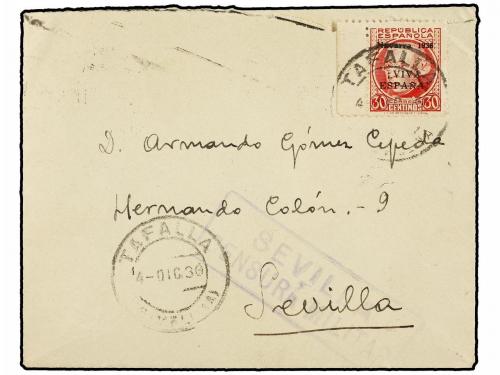 REPÚBLICA
ESPAÑOLA
Navarra 1936
VIVA
ESPAÑA
30 CENTIMOS 30
TAFALLA
4
D. Armando Gómez Cepeda
Hernando Colón.-9
Sevilla
TAFALLA
4-DIC.36
SEVILLA
CENSURA